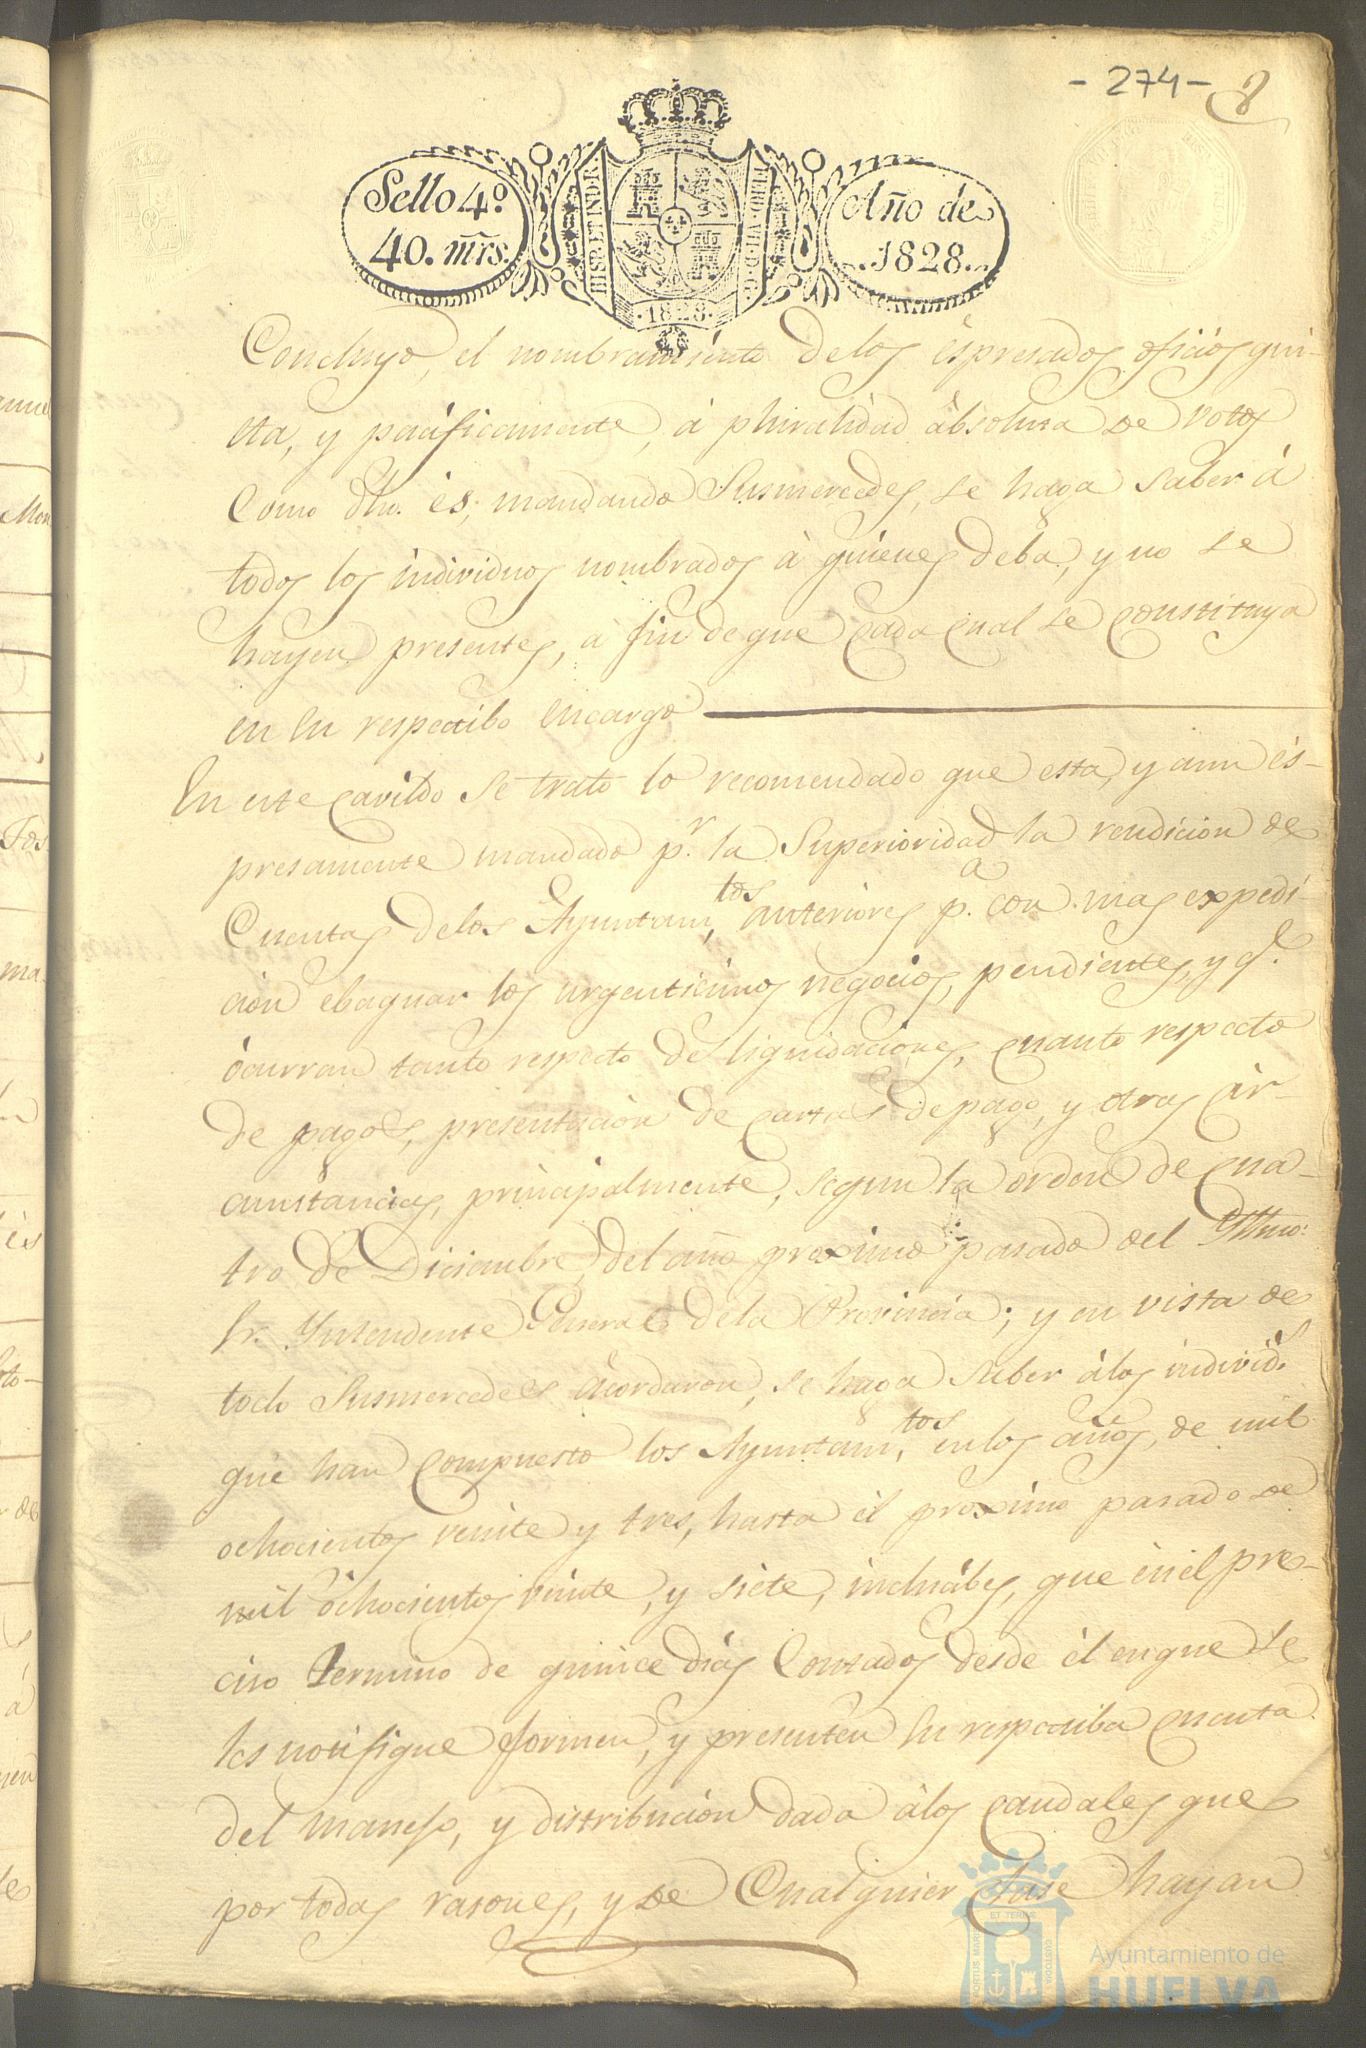 - 274 - 8
Sello 4º
40. mrs.
HISP. ET IND. R
1828
Año de
1828.
Concluyo, el nombramiento delos èspresados oficios qui-
eta, y pacificamente, á pluralidad àbsoluta de votos
como dho. ès; mandando Susmercedes, se haga saber á
todos los individuos nombrados à quienes deba, y no se
hayen presentes, á fin de que cada cual se constituya
en su respectibo encargo
En este cavildo se trato lo recomendado que esta, y aun és-
presamente mandado p.r la Superioridad la rendicion de
Cuentas delos Ayuntam.tos anteriores p.a con mas expedi-
cion ebaquar los urgenticimos negocios, pendientes, y q.e
òcurran tanto respecto de liquidaciones, cuanto respecto
de pagos, presentacion de cartas de pago, y otras cir-
cunstancias, principalmente, segun la orden de cua-
tro de Diciembre, del año proximo pasado del Yltmo:
Sr. Yntendente General dela Provincia; y en vista de
todo Susmercedes àcordaron, se haga saber àlos individ.s
que han compuesto los Ayuntam.tos enlos años, de mil
ochocientos veinte y tres, hasta èl proximo pasado de
mil òchocientos veinte, y siete, inclusibes, que en el pre-
ciso termino de quince dias contados desde èl enque se
les notifique formen, y presenten su respectiba cuenta
del manejo, y distribucion dada àlos caudales que
por todas rasones, y de cualquier clase hayan
PORTUS MARIS ET TERRE CUSTODIA
Ayuntamiento de
HUELVA